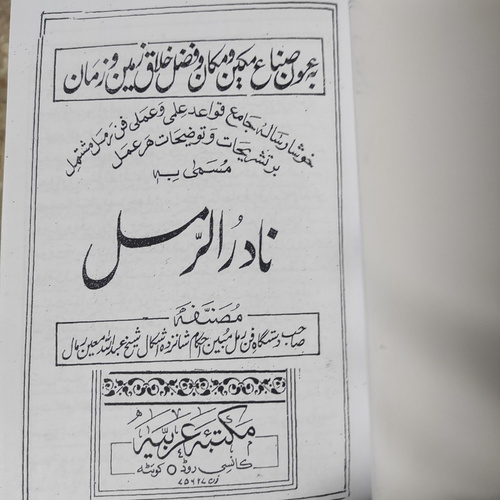 بہ عون صناع مکین و مکان و فضل خلاق زمین و زمان
خوشا رسالہ جامع قواعد علمی و عملی فن رمل مشتمل
بر تشریحات و توضیحات ہر عمل
مسمیٰ بہ
نادرُ الرّمل
مُصنّفہ
صاحب دستگاہ فن رمل مبین احکام شانزدہ اشکال شیخ عبداللہ معین رمال
مکتبہ عربیہ
کانسی روڈ کوئٹہ